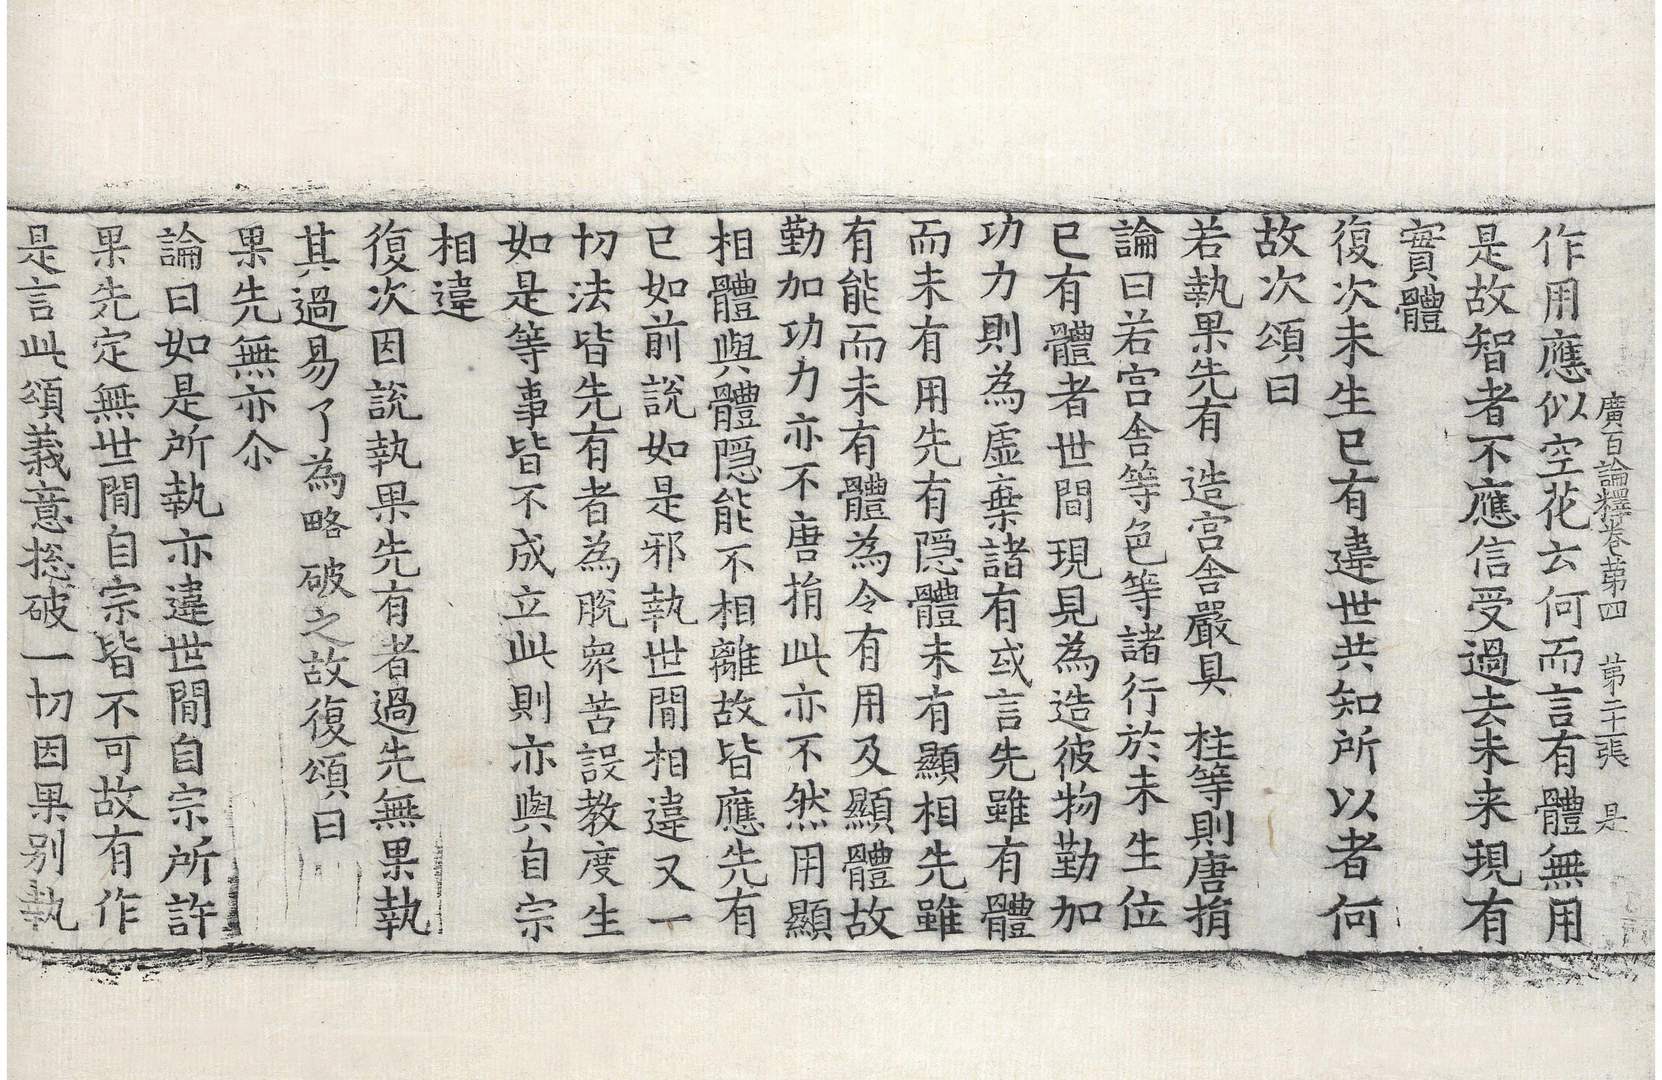 廣百論釋卷第四　第二十張　是
作用應似空花云何而言有體無用
是故智者不應信受過去未来現有
實體
復次未生已有違世共知所以者何
故次頌曰
若執果先有　造宮舍嚴具　柱等則唐捐
論曰若宮舍等色等諸行於未生位
已有體者世間現見為造彼物勤加
功力則為虛棄諸有或言先雖有體
而未有用先有隠體未有顯相先雖
有能而未有體為令有用及顯體故
勤加功力亦不唐捐此亦不然用顯
相體與體隠能不相離故皆應先有
已如前說如是邪執世間相違又一
切法皆先有者為脫衆苦設教度生
如是等事皆不成立此則亦與自宗
相違
復次因說執果先有者過先無果執
其過易了為略破之故復頌曰
果先無亦尒
論曰如是所執亦違世間自宗所許
果先定無世間自宗皆不可故有作
是言此頌義意捴破一切因果別執